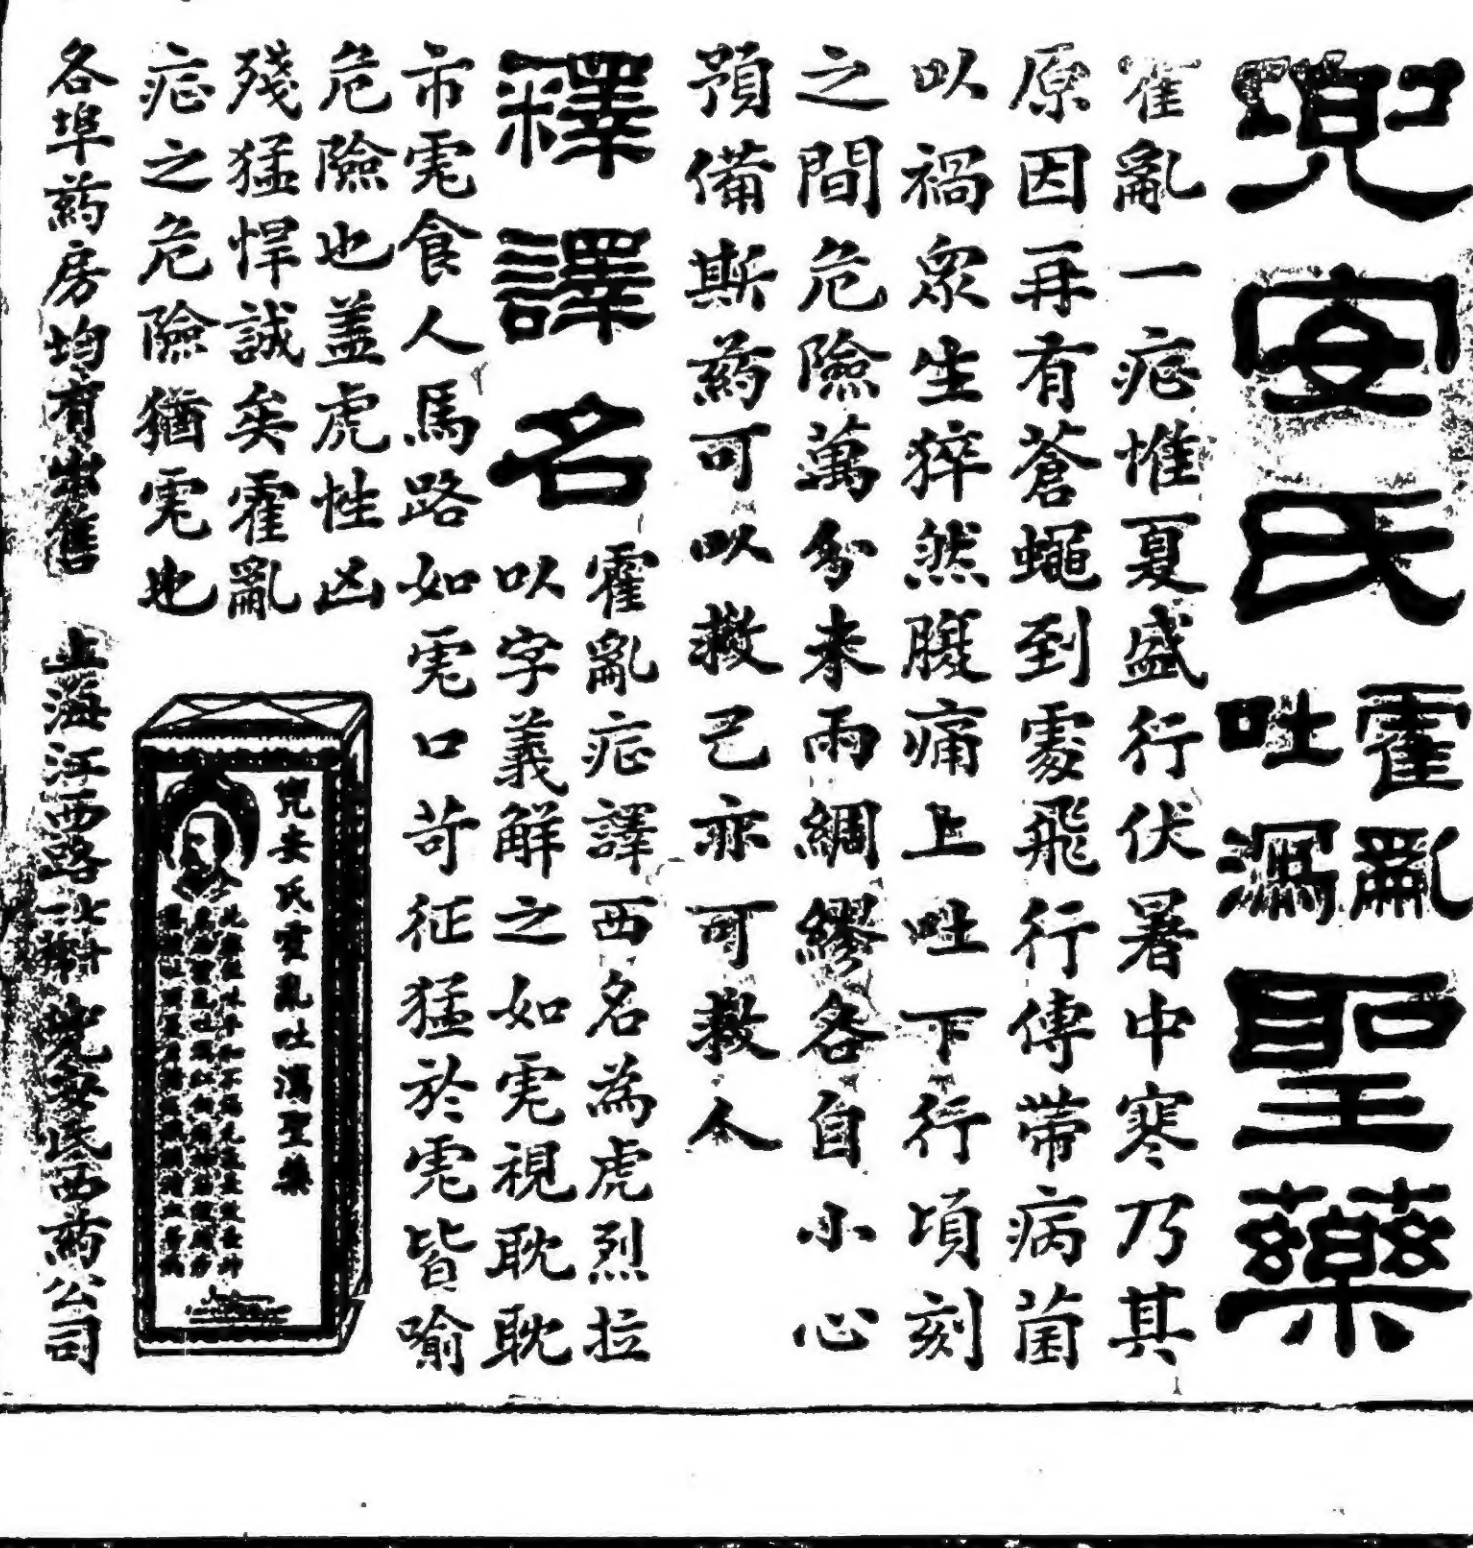 兜安氏霍亂吐瀉聖藥
霍亂一症惟夏盛行伏暑中寒乃其
原因再有蒼蠅到處飛行傳帶病菌
以禍眾生猝然腹痛上吐下行頃刻
之間危險萬分未雨綢繆各自小心
預備斯药可以救己亦可救人
釋譯名
霍亂症譯西名為虎烈拉
以字義解之如虎視耽耽
市虎食人馬路如虎口苛征猛於虎皆喻
危險也盖虎性凶
殘猛悍誠矣霍亂
症之危險猶虎也
兜安氏霍亂吐瀉聖藥
各埠药房均有出售 上海江西路 兜安氏西药公司